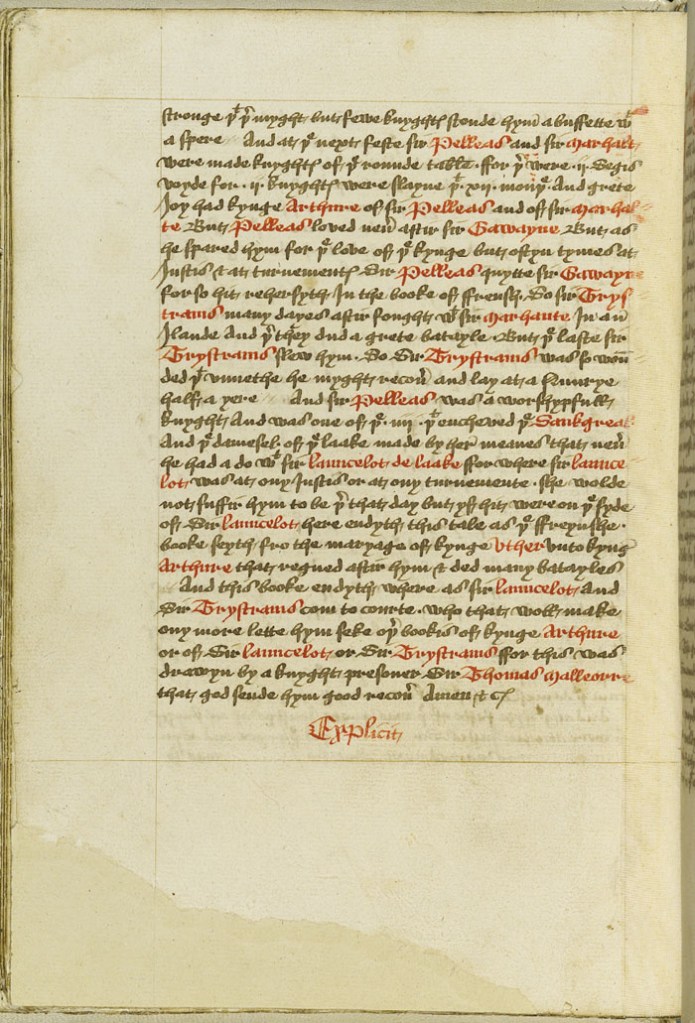 stronge þᵗ þʳ myght but fewe knyghtꝭ stonde hym a buffette wᵗ
a spere And at þᵉ next feste sir Pelleas and sir Marhalt
were made knyghtꝭ of þᵉ rounde table ffor þʳ were .ij. Segis
voyde for .ij. knyghtꝭ were slayne þᵗ .xij. monþᵉ And grete
Joy had kynge Arthure of sir Pelleas and of sir Marhal
te But Pelleas loved nevir aftir sir Gawayne But as
he spared hym for þᵉ love of þᵉ kynge but oftyn tymes at
Justis & at turnementꝭ Sir Pelleas quytte sir Gawayne
for so hit rehersyth In the booke of ffrensh. So sir Trys
trams many dayes aftir fought wᵗ sir Marhaute In an
Ilande And þʳ they dud a grete batayle But þᵉ laste sir
Trystrams slew hym. So Sir Trystrams was so woun̄
ded þᵗ unnethe he myght recovir and lay at a Nunrye
half a yere And sir Pelleas was a worshypfull
knyght And was one of þᵉ .iiij. þᵗ encheved þᵉ Sankgreal
And þᵉ damesel of þᵉ laake made by her meanes that nevir
he had a do wᵗ sir launcelot de laake ffor where sir launce
lot was at ony Justis or at ony turnemente she wolde
not suffir hym to be þʳ that day but yf hit were on þᵉ syde
of Sir launcelot here endyth this tale as þᵉ ffreynshe
booke seyth fro the maryage of kynge Uther unto kyng
Arthure that regned aftir hym & ded many batayles
And this booke endyth where as sir launcelot And
Sir Trystrams com to courte. who that woll make
ony more lette hym seke oþir bookis of kynge Arthure
or of Sir launcelot or Sir Trystrams ffor this was
drawyn by a knyght presoner Sir Thomas Malleorre
that god sende hym good recovir Amen &cꝭ
Explicit